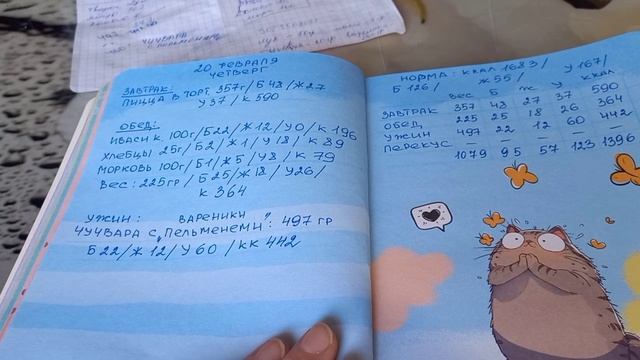 ЧУЧВАРА
20 ФЕВРАЛЯ
ЧЕТВЕРГ
ЗАВТРАК:
ПИЦЦА В ТОРТ. 357г/Б43/Ж27
У37/К590
ОБЕД:
ИВАСИ К. 100г/Б22/Ж12/У0/К196
ХЛЕБЦЫ 25г/Б2/Ж1/У18/К89
МОРКОВЬ 100г/Б1/Ж5/У8/К79
ВЕС: 225ГР/Б25/Ж18/У26/
К364
УЖИН: ВАРЕНИКИ
ЧУЧВАРА С „ПЕЛЬМЕНЕМИ": 497 ГР
Б22/Ж12/У60/КК442
НОРМА: ККАЛ 1683/ У167/
Б126/ Ж55/
ВЕС Б Ж У ККАЛ
ЗАВТРАК 357 43 27 37 590
ОБЕД 225 25 18 26 364
УЖИН 497 22 12 60 442
ПЕРЕКУС — — — — —
1079 95 57 123 1396